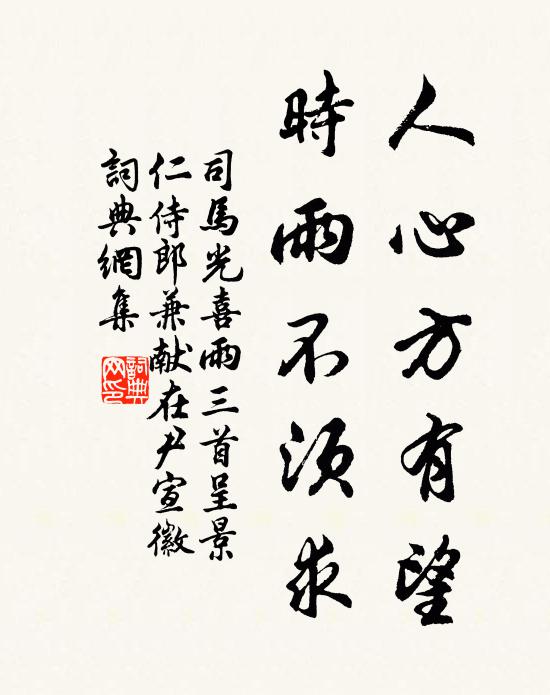 人心方有望
時雨不須求
司馬光喜雨三首呈景
仁侍郎兼献在尹宣徽
詞典網集
詞典網印